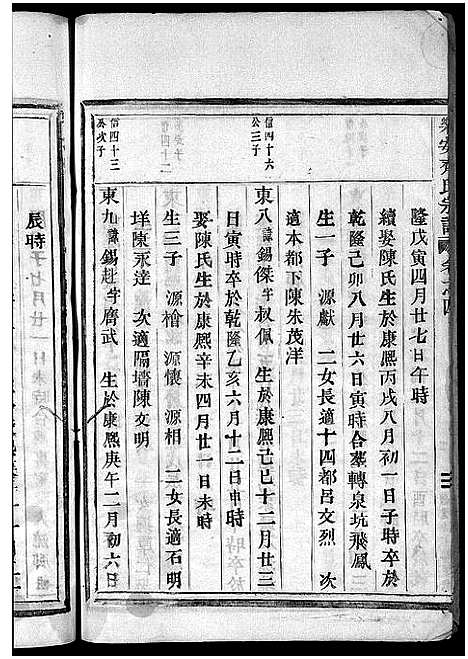 樂安齊氏宗譜 卷之四
隆戊寅四月廿七日午時
續娶陳氏生於康熙丙戌八月初一日子時卒於
乾隆己卯八月廿六日寅時合塟轉泉坑飛鳳
生一子 源獻 二女長適十四都呂文烈 次
適本都下陳朱茂洋
信四十六
公三子
東八諱錫傑字叔佩 生於康熙己巳十二月廿三
日寅時卒於乾隆乙亥六月十二日申時
娶陳氏生於康熙辛未四月廿一日未時
生三子 源檜 源懷 源相 二女長適石明
垟陳永達 次適隔墻陳文明
信四十三
公次子
東九諱錫赴字膺武 生於康熙庚午二月初六日
辰時